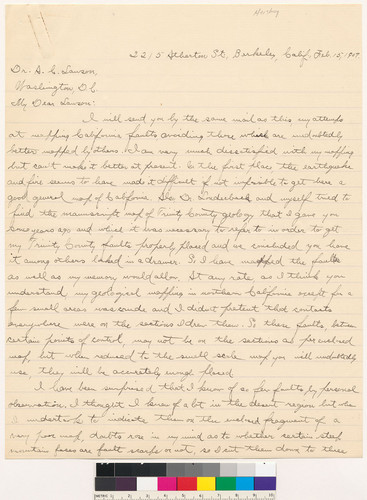 2215 Atherton St., Berkeley, Calif. Feb. 15, 1907.
Dr. A. C. Lawson,
Washington, D.C.
My Dear Lawson:
I will send you by the same mail as this my attempt
at mapping California faults avoiding those which are undoubtedly
better mapped by others. I am very much dissatisfied with my mapping
but can't make it better at present. In the first place the earthquake
and fire seems to have made it difficult if not impossible to get here a
good general map of California. Dr. Louderback and myself tried to
find the manuscript map of Trinity County geology that I gave you
some years ago and which it was necessary to refer to in order to get
my Trinity County faults properly placed and we concluded you have
it among others locked in a drawer. So I have mapped the faults
as well as my memory would allow. At any rate, as I think you
understand my geological mapping in northern California except for a
few small areas was crude and I didn't pretend that contacts
everywhere were on the sections I drew them. So these faults, between
certain points of control, may not be on the sections as per enclosed
map but when reduced to the small scale map you will undoubtedly
use, they will be accurately enough placed.
I have been surprised that I know of so few faults by personal
observation. I thought I knew of a lot in the desert region but when
I undertook to indicate them on the enclosed fragment of a
very poor map, doubts rose in my mind as to whether certain steep
mountain faces are fault scarps or not, so I set them down to those